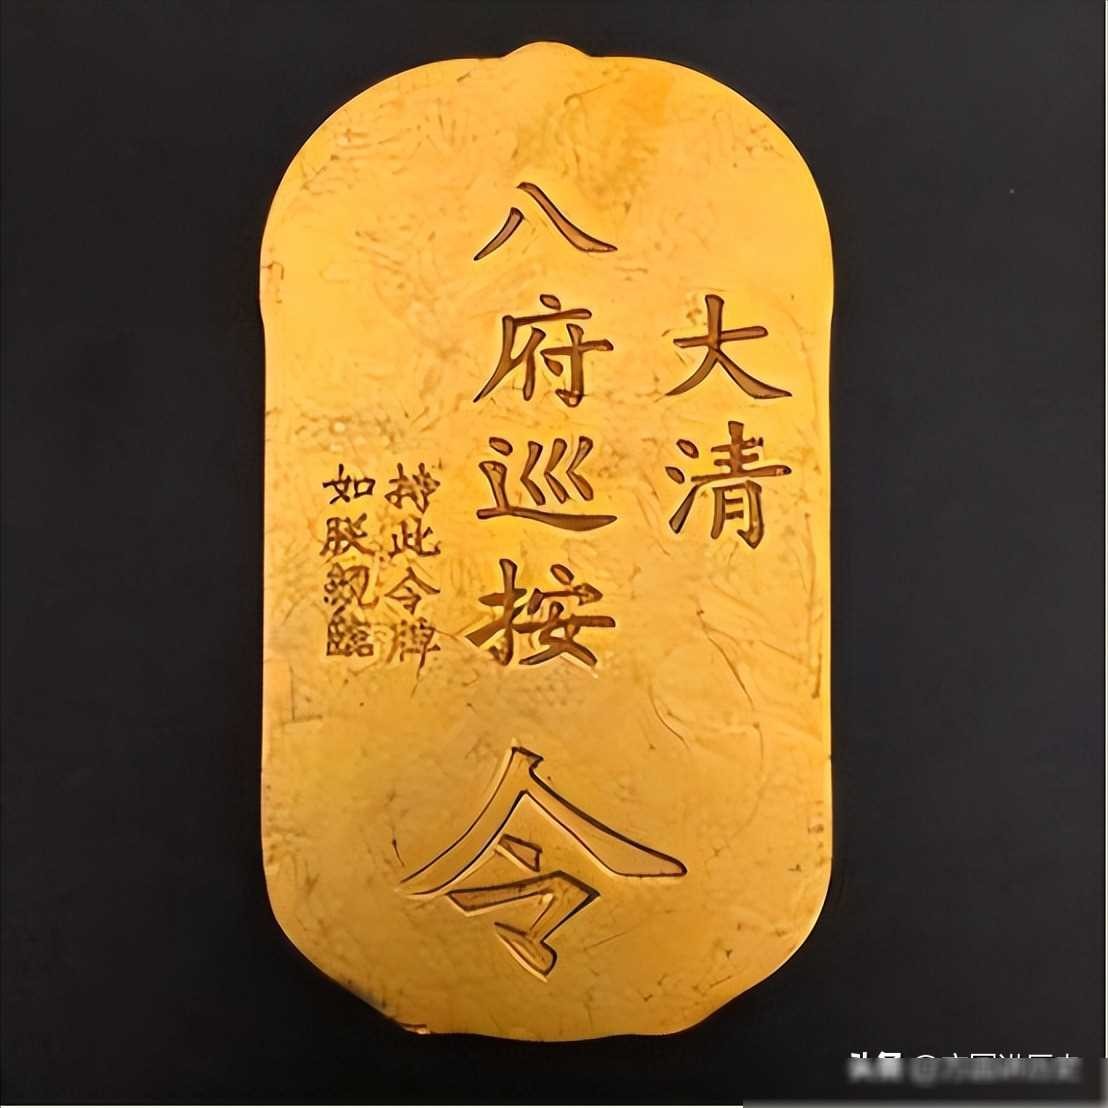 大清
八府巡按
令
持此令牌
如朕親臨
头条